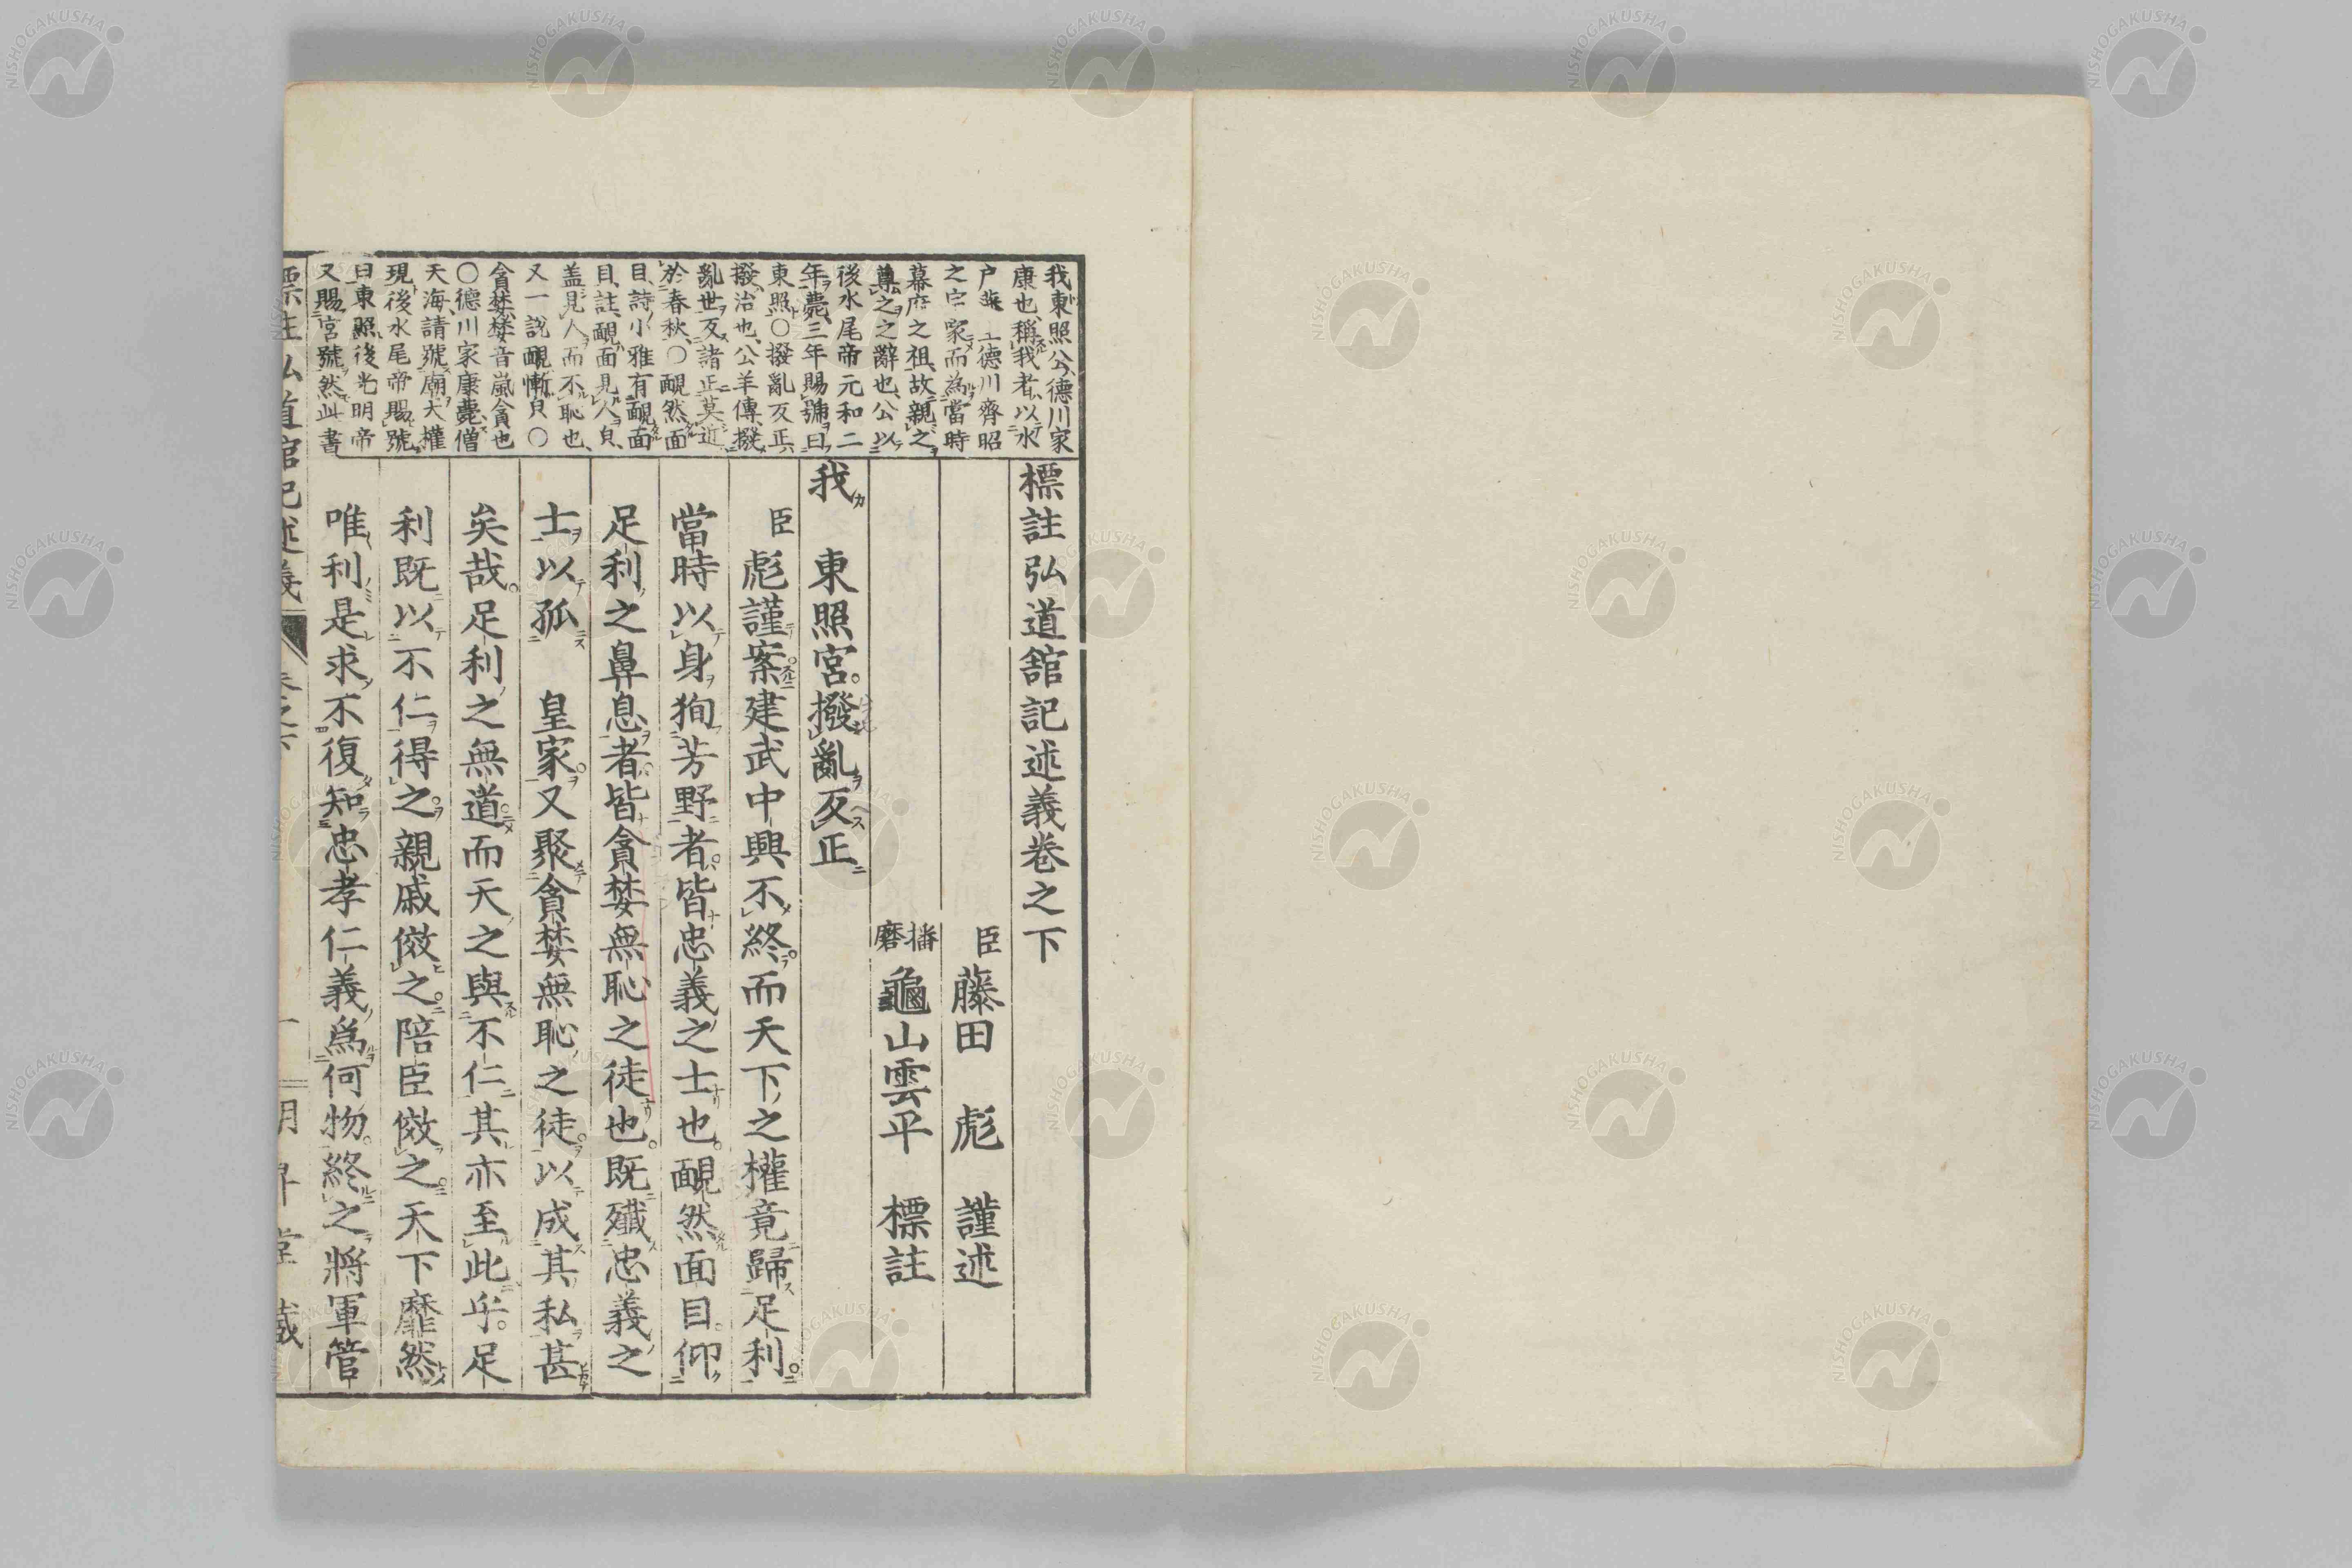 標註弘道館記述義卷之下
臣藤田 彪 謹述
播磨 龜山雲平 標註
我 東照宮。撥亂反正
臣彪謹案。建武中興不終。而天下之權竟歸足利。
當時以身狥芳野者。皆忠義之士也。靦然面目。仰
足利之鼻息者。皆貪婪無恥之徒也。既殲忠義之
士以孤 皇家。又聚貪婪無恥之徒。以成其私。甚
矣哉。足利之無道。而天之與不仁。其亦至此乎。足
利既以不仁得之。親戚傚之。陪臣傚之。天下靡然
唯利是求。不復知忠孝仁義爲何物。終之將軍管
我東照公、德川家
康也、稱我者、以水
戸 德川齊昭
之 家而為當時
幕府之祖、故親之
尊之之辭也、公以
後水尾帝元和二
年薨、三年賜號曰
東照、〇撥亂反正、
撥治也、公羊傳、撥
亂世反諸正、莫近
於春秋、〇靦然面
目、詩小雅有靦面
目、註、靦面見人貌、
蓋見人而不恥也、
又一說靦慚貌〇
貪婪、婪音嵐貪也
〇德川家康薨、僧
天海、請號廟大權
現、後水尾帝賜號
曰東照、後光明帝
又賜宮號、然此書
標註弘道館記述義 卷之下 一